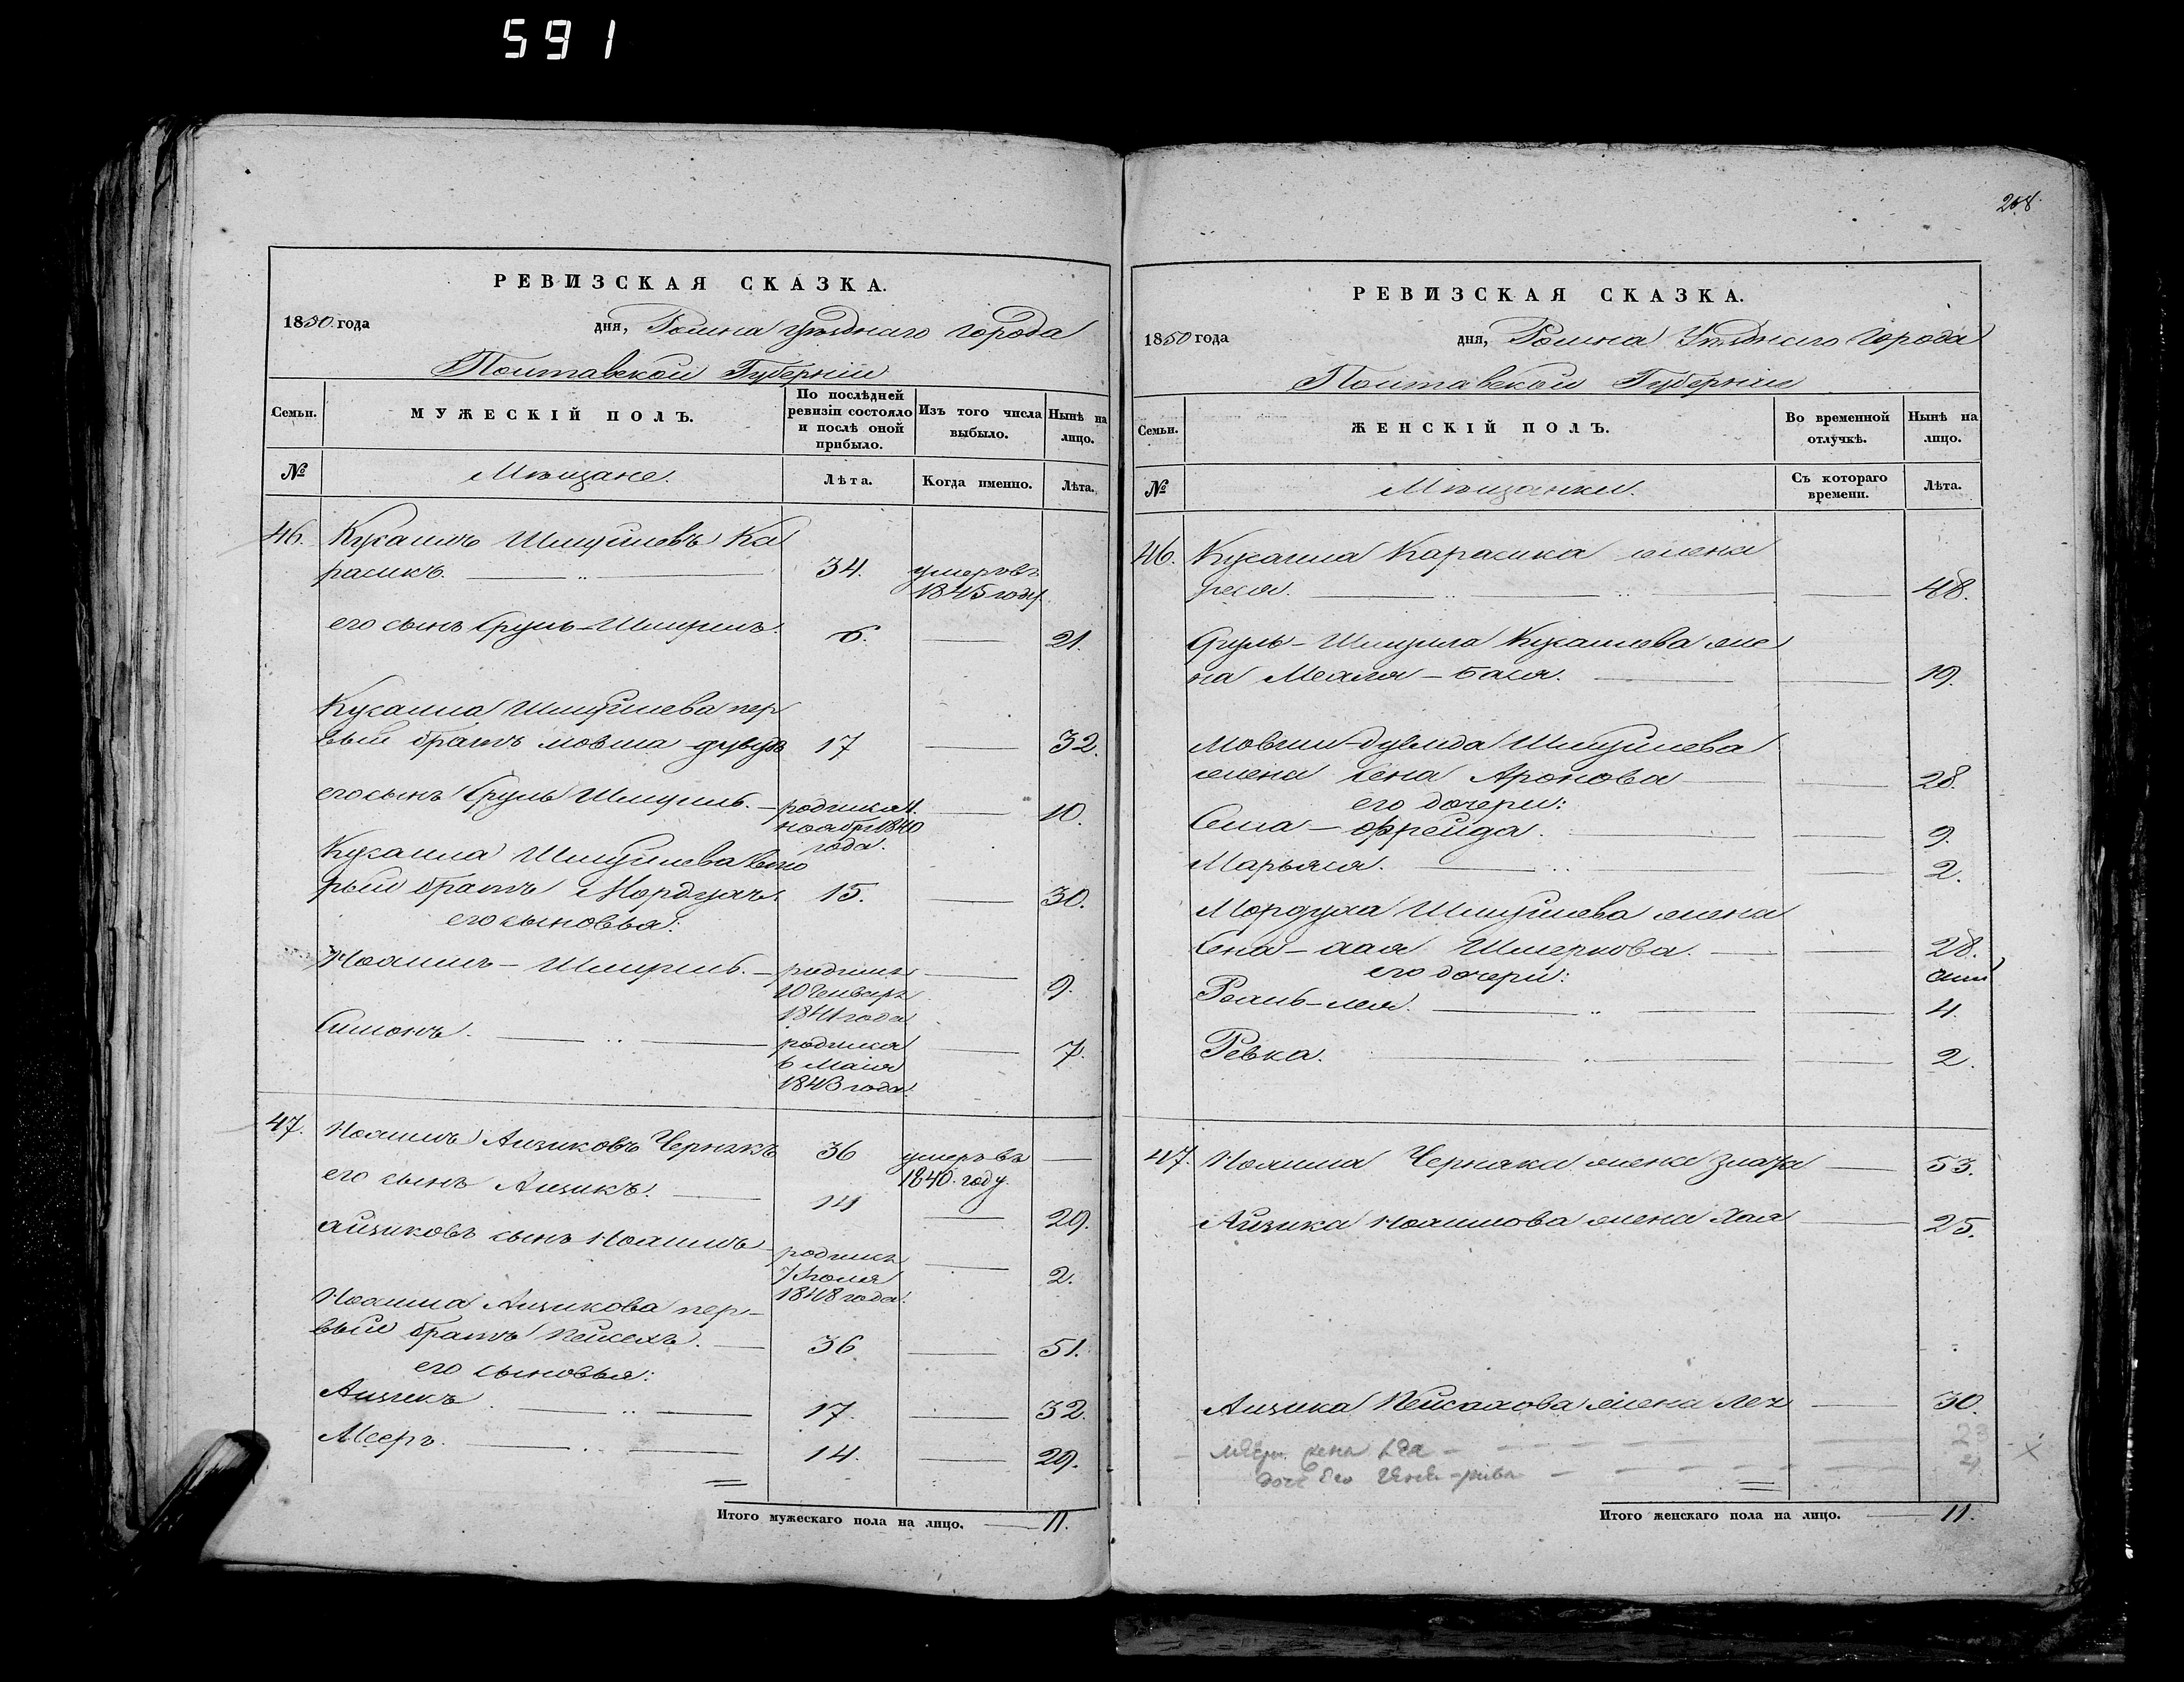 591
РЕВИЗСКАЯ СКАЗКА.
1850 года дня, Ромна уѣзднаго города
Полтавской Губерніи
Семьи. МУЖЕСКІЙ ПОЛЪ. По послѣдней ревизіи состояло и послѣ оной прибыло. Изъ того числа выбыло. Нынѣ на лицо.
№ Мѣщане. Лѣта. Когда именно. Лѣта.
46. Кусашъ Шмуйлевъ Ка
расикъ. 34. умеръ въ
1845 году
его сынъ Сруль-Шмуилъ. 6. 21.
Шмуйлева пер
вый братъ Мовша-дувидъ 17 32.
его сынъ Сруль Шмуиль. родился 4.
ноября 1840
года. 10.
Шмуйлева вто
рый братъ Мордухъ. 15. 30.
его сыновья:
Шмуиль. родился
10 Генваря
1841 года 9.
Симонъ. родился
6 Маія
1843 года. 7.
47. Айзиковъ Чернякъ 36 умеръ въ
1840. году.
его сынъ Айзикъ. 14 29.
айзиковъ сынъ родился
7 Іюля
1848 года. 2.
Айзикова пер-
вый братъ Пейсехъ. 36 51.
его сыновья:
Айзикъ. 17. 32.
Мееръ. 14. 29.
Итого мужескаго пола на лицо. 11.
208.
РЕВИЗСКАЯ СКАЗКА.
1850 года дня, Ромна Уѣзднаго Города
Полтавской Губерніи
Семьи. ЖЕНСКІЙ ПОЛЪ. Во временной отлучкѣ. Нынѣ на лицо.
№ Мѣщанки. Съ котораго времени. Лѣта.
46. Карасика жена
48.
Сруль-Шмуила жe
на Бася. 19.
Мовши-дувида Шмуйлева
жена Сена Аронова 28.
его дочери:
Фрейда. 9.
Марьяся. 2.
Мордуха Шмуйлева жена
Шмеркова. 28.
его дочери:
лея. 4.
Ревка. 2.
47. Черняка жена Злата 53.
Айзика жена Хая 25.
Айзика Пейсахова жена Лея 30.
жена 23
дочь его 4
Итого женскаго пола на лицо. 11.